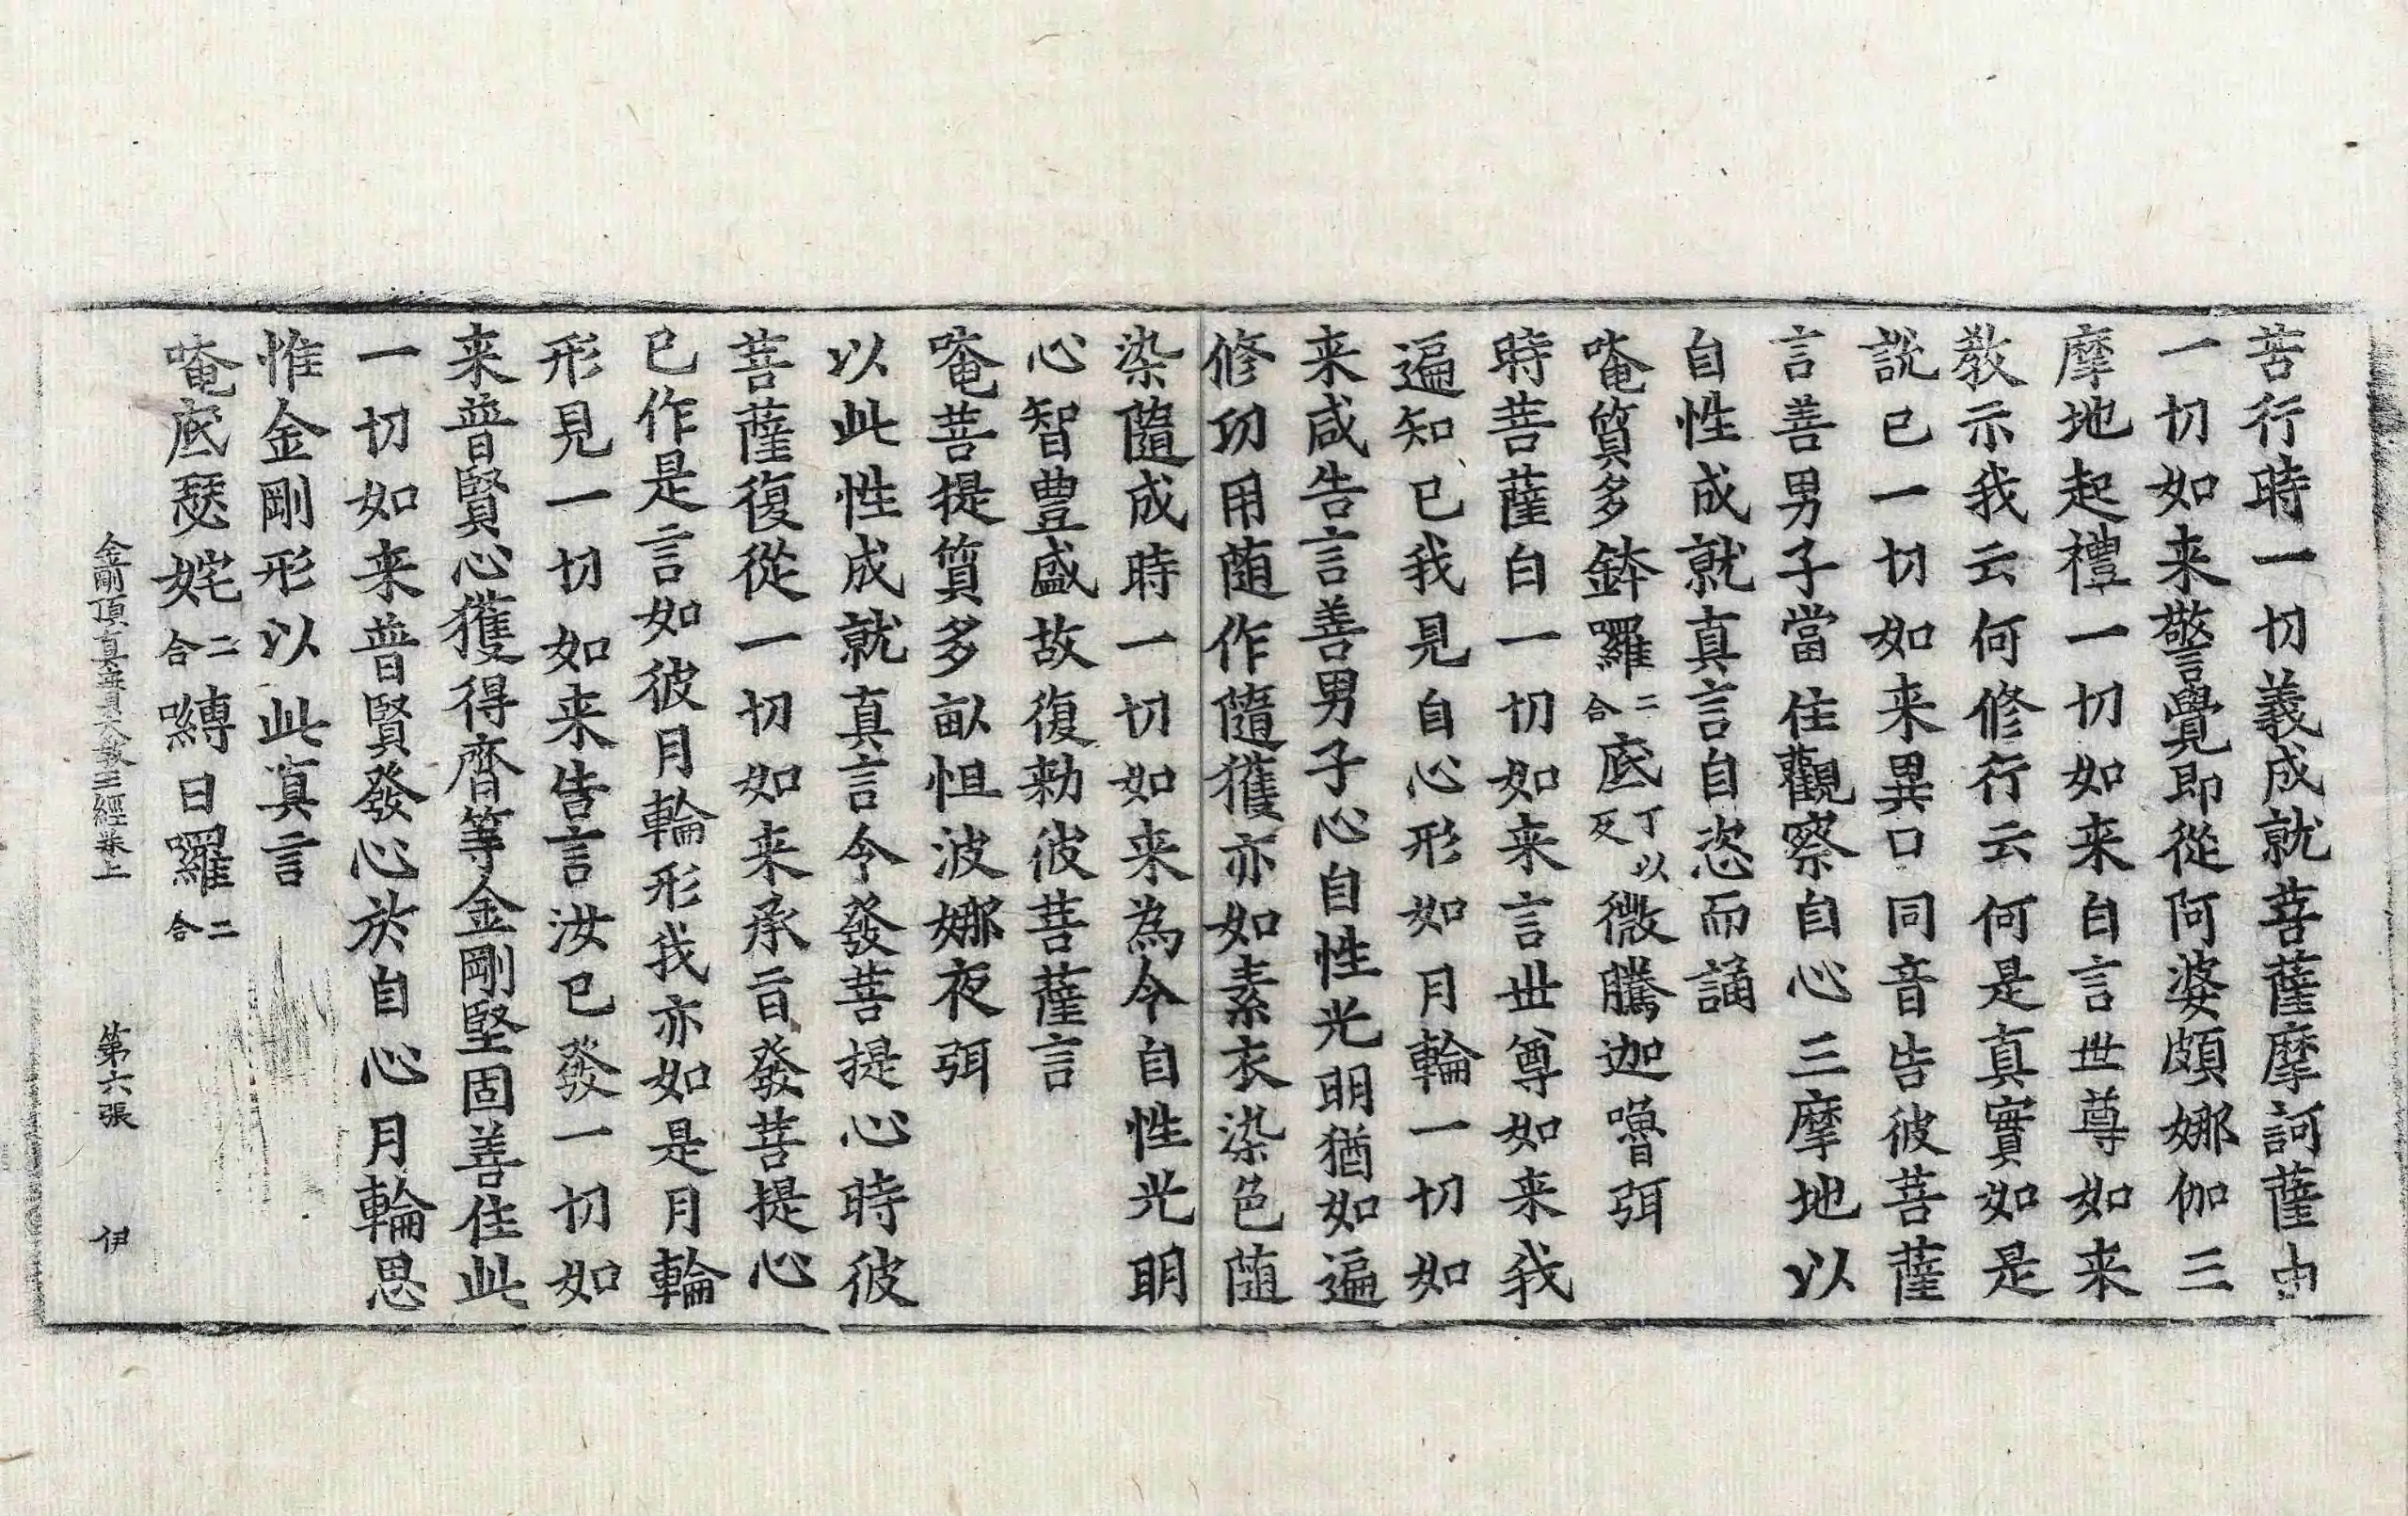 苦行時一切義成就菩薩摩訶薩由
一切如来警覺即從阿婆頗娜伽三
摩地起禮一切如来白言世尊如来
教示我云何修行云何是真實如是
説已一切如来異口同音告彼菩薩
言善男子當住觀察自心三摩地以
自性成就真言自恣而誦
唵質多鉢囉二合底丁以反微騰迦嚕弭
時菩薩白一切如来言世尊如来我
遍知已我見自心形如月輪一切如
来咸告言善男子心自性光明猶如遍
修功用随作隨獲亦如素衣染色随
染隨成時一切如来為令自性光明
心智豊盛故復勑彼菩薩言
唵菩提質多畝怛波娜夜弭
以此性成就真言令發菩提心時彼
菩薩復從一切如来承旨發菩提心
已作是言如彼月輪形我亦如是月輪
形見一切如来告言汝已發一切如
来普賢心獲得齊等金剛堅固善住此
一切如来普賢發心於自心月輪思
惟金剛形以此真言
唵底瑟姹二合嚩日囉二合
金剛頂真實大教王經卷上 第六張 伊